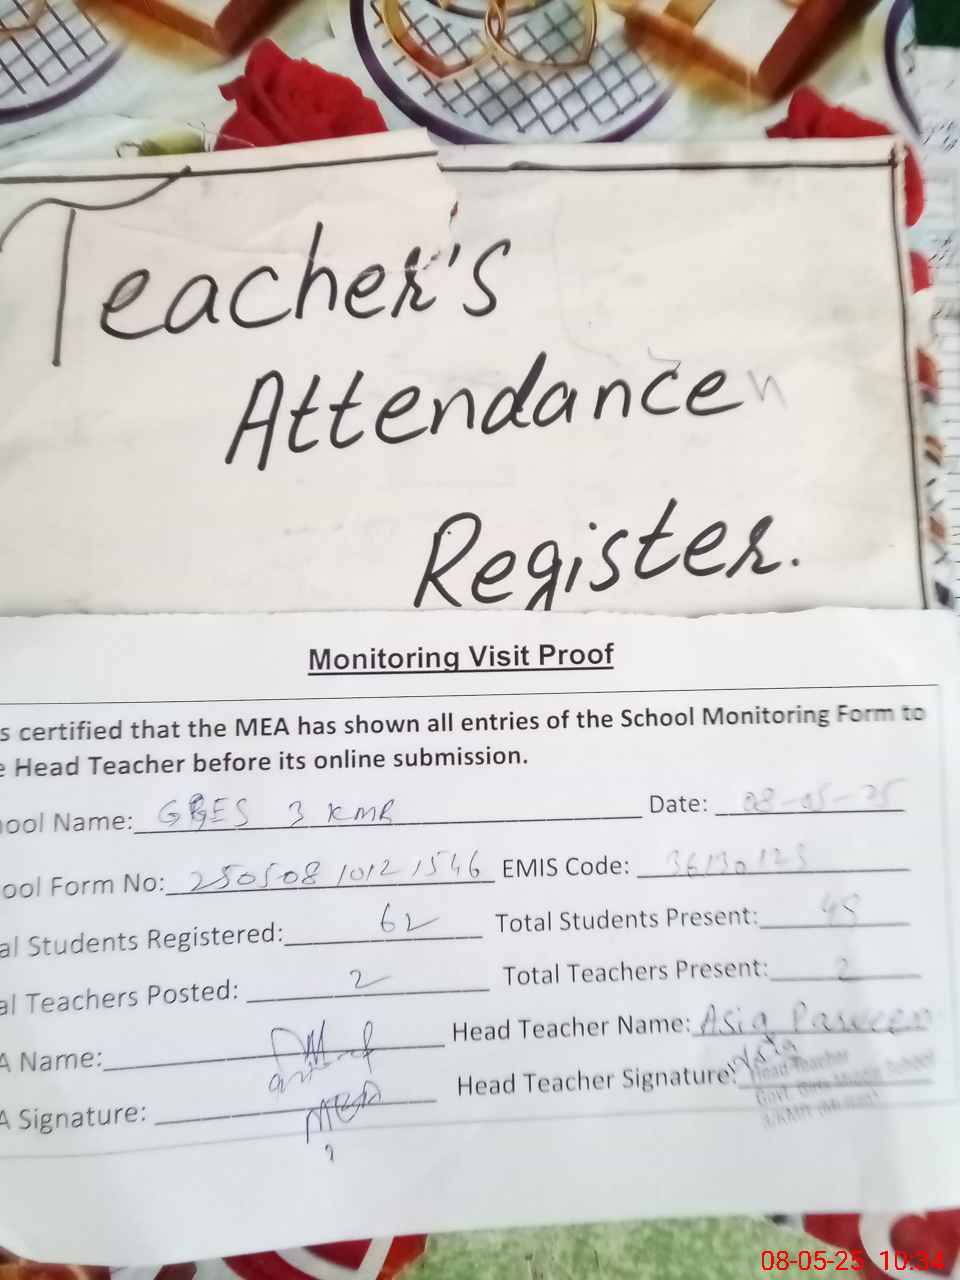 Teacher's
Attendance
Register.
Monitoring Visit Proof
s certified that the MEA has shown all entries of the School Monitoring Form to
e Head Teacher before its online submission.
ool Name: GGES 3 KMR Date: 08-05-25
ool Form No: 25050810121546 EMIS Code: 36130123
al Students Registered: 62 Total Students Present: 48
al Teachers Posted: 2 Total Teachers Present: 2
A Name: Head Teacher Name: Asia Parveen
A Signature: MEA Head Teacher Signature: Asia
Head Teacher
Govt. Girls Middle School
08-05-25 10:34